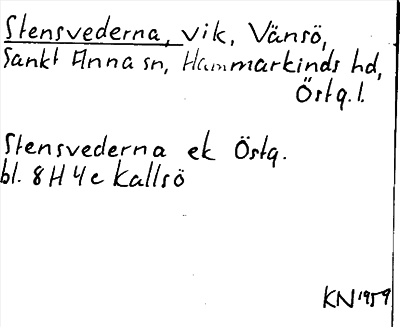 Stensvederna, vik, Vänsö,
Sankt Anna sn, Hammarkinds hd,
Östg. l.
Stensvederna ek Östg.
bl. 8 H 4 e Kallsö
KN 1959